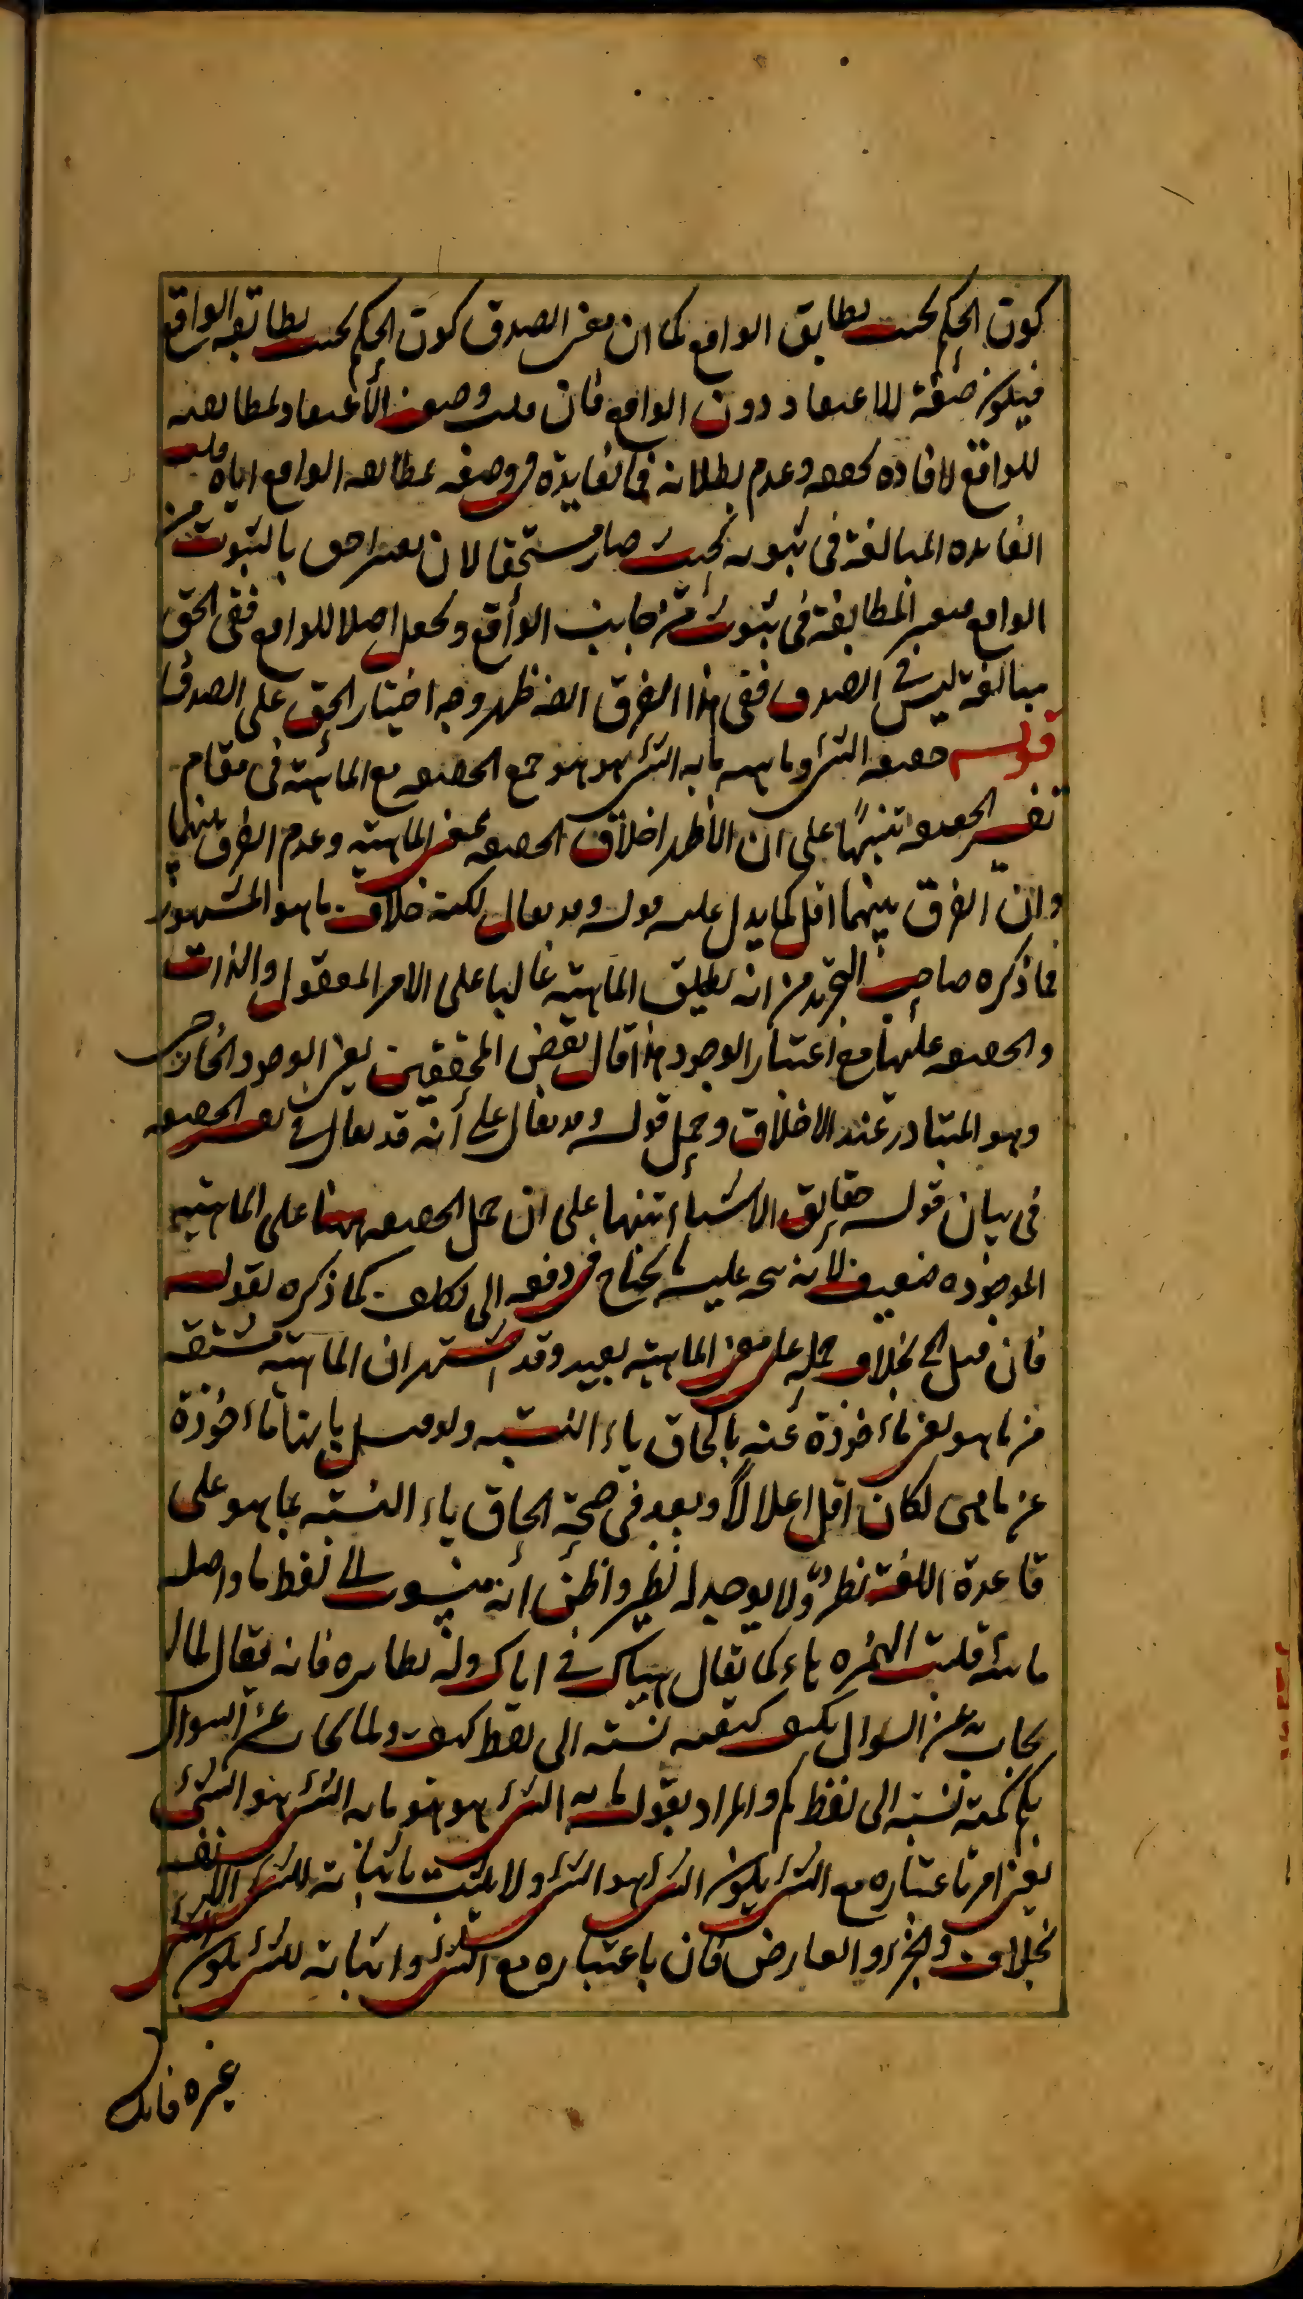 كون الحكم بحيث يطابق الواقع كما ان معنى الصدق كون الحكم بحيث يطابقه الواقع
فيكون صفة للاعتقاد دون الواقع فان قلت وصف الاعتقاد لمطابقته
للواقع لافادة تحققه وعدم بطلانه فما الفايدة في وصفه بمطابقة الواقع اياه قلت
الفايدة المبالغة في ثبوته بحيث صار مستحقا لان يعتبر احق بالثبوت من
الواقع فيعتبر المطابقة في ثبوت من جانب الواقع ويجعل اصلا للواقع ففي الحق
مبالغة ليس في الصدق ففي هذا الفرق ايضا ظهر وجه اختيار الحق على الصدق
قوله حقيقة الشئ وماهيته ما به الشئ هو هو جمع الحقيقة مع الماهية في مقام
تفسير الحقيقة تنبيها على ان الاظهر اطلاق الحقيقة بمعنى الماهية وعدم الفرق بينهما
وان الفرق بينهما اقل كما يدل عليه قوله وقد يقال لكنه خلاف ما هو المشهور
فما ذكره صاحب التجريد من انه يطلق الماهية غالبا على الامر المعقول والذات
والحقيقة عليها مع اعتبار الوجود هذا قال بعض المحققين يعني الوجود الخارجي
وهو المتبادر عند الاطلاق وحمل قوله وقد يقال على أنه قد يقال في تفسير الحقيقة
في بيان قوله حقايق الاشياء تنبيها على ان حمل الحقيقة ههنا على الماهية
الموجودة ضعيف لانه يتجه عليه ما يحتاج في دفعه الى تكلف كما ذكره بقوله
فان قيل الخ بخلاف حمله على معنى الماهية بعيد وقد اشتهر ان الماهية مشتقة
من ما هو يعني مأخوذة عنه بالحاق ياء النسبة ولو قيل بانها مأخوذة
عن ما هى لكان اقل اعلالا وبعد في صحة الحاق ياء النسبة بما هو على
قاعدة اللغة نظر ولا يوجد له نظير واظن أنه منسوب الى لفظ ما واصله
مائية قلبت الهمزة هاء كما يقال هياك في اياك وله نظايره فانه يقال لما
يجاب به عن السوال بكيف كيفية نسبة الى لفظ كيف ولما يجاب عن السوال
بكم كمية نسبة الى لفظ كم والمراد بقوله ما به الشئ هو هو ما به الشئ هو الشئ نفسه
يعني امر باعتباره مع الشئ يكون الشئ هو الشئ ولا يثبت باثباته للشئ الا الشئ
بخلاف الجزء والعارض فان باعتباره مع الشئ واثباته للشئ يكون الشئ
غيره فانك